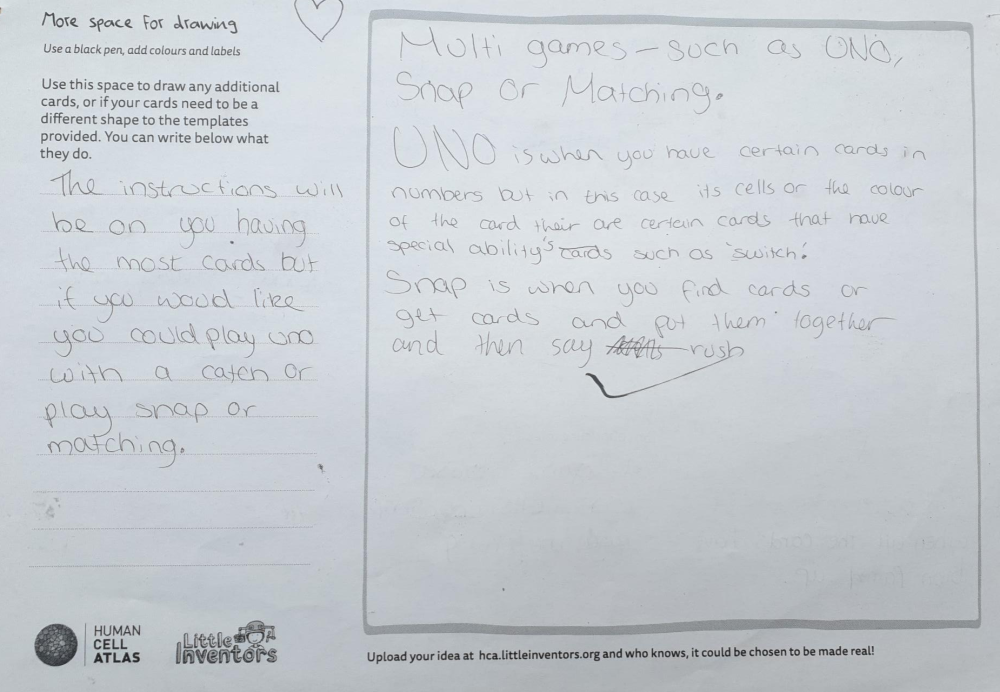 More space for drawing
Use a black pen, add colours and labels
Use this space to draw any additional
cards, or if your cards need to be a
different shape to the templates
provided. You can write below what
they do.
The instructions will
be on you having
the most cards but
if you would like
you could play uno
with a catch or
play snap or
matching.
HUMAN
CELL
ATLAS
Little
Inventors
Multi games - such as UNO,
Snap or Matching.
UNO is when you have certain cards in
numbers but in this case its cells or the colour
of the card their are certain cards that have
special ability's cards such as 'switch'.
Snap is when you find cards or
get cards and put them together
and then say rush
Upload your idea at hca.littleinventors.org and who knows, it could be chosen to be made real!